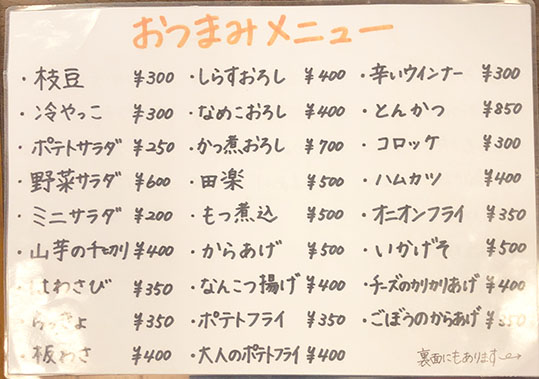 おつまみメニュー
・枝豆 ¥300
・冷やっこ ¥300
・ポテトサラダ ¥250
・野菜サラダ ¥600
・ミニサラダ ¥200
・山芋の千切り ¥400
わさび ¥350
らっきょ ¥350
・板わさ ¥400
・しらすおろし ¥400
・なめこおろし ¥400
・かつ煮おろし ¥700
・田楽 ¥500
・もつ煮込 ¥500
・からあげ ¥500
・なんこつ揚げ ¥400
・ポテトフライ ¥350
・大人のポテトフライ ¥400
・辛いウインナー ¥300
・とんかつ ¥850
・コロッケ ¥300
・ハムカツ ¥400
・オニオンフライ ¥350
・いかげそ ¥500
・チーズのカリカリあげ ¥400
・ごぼうのからあげ ¥350
裏面にもあります→